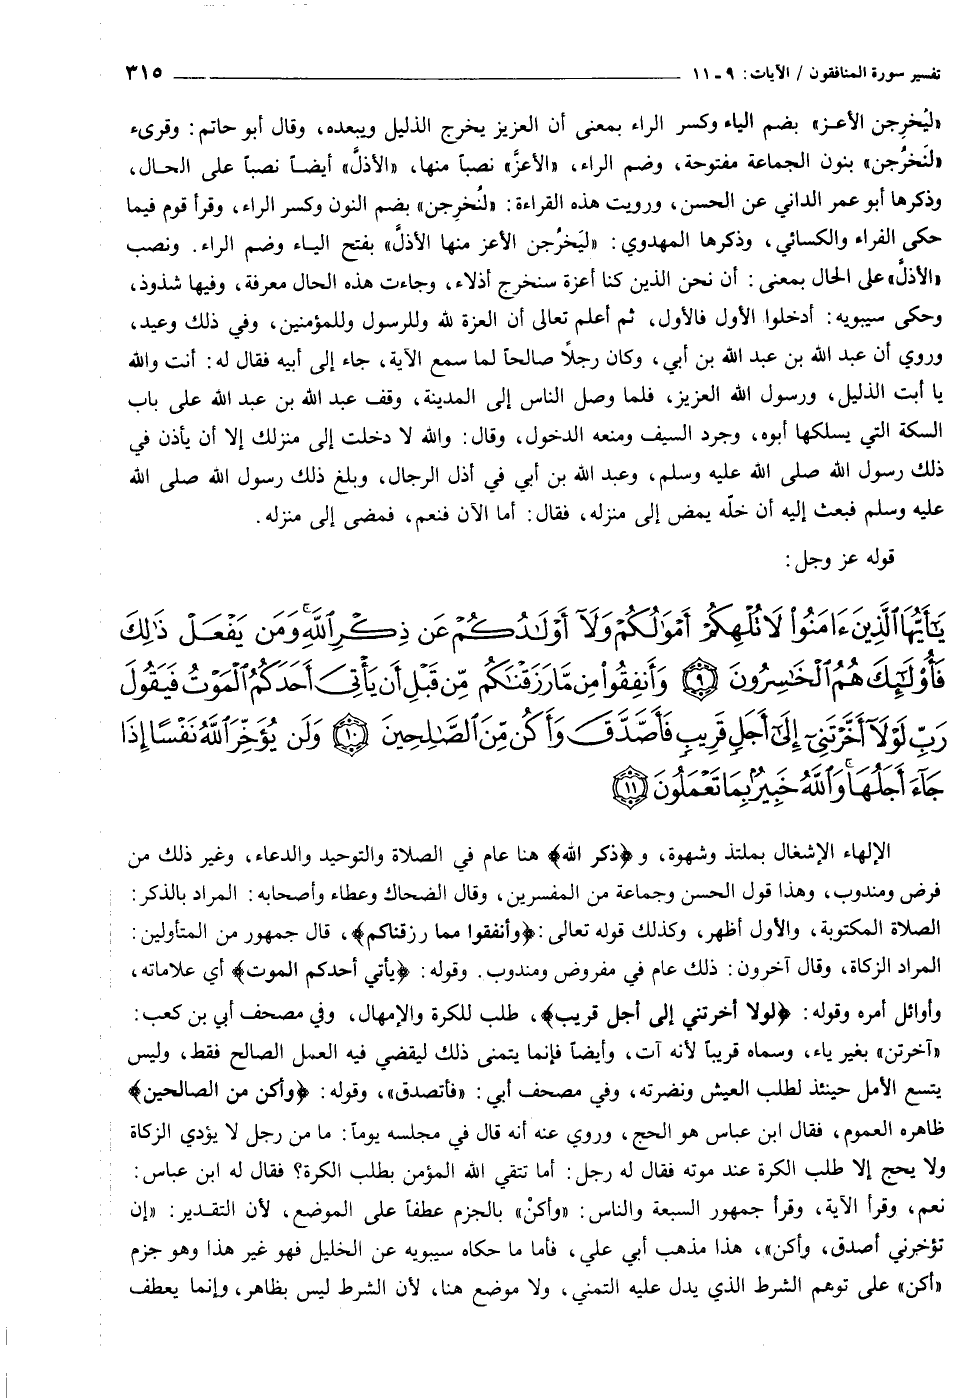 تفسير سورة المنافقون / الآيات: ٩ ـ ١١ ٣١٥
«ليُخرِجن الأعـز» بضم الياء وكسر الراء بمعنى أن العزيز يخرج الذليل ويبعده، وقال أبو حاتم: وقرىء
«لنَخرُجن» بنون الجماعة مفتوحة، وضم الراء، «الأعزَّ» نصباً منها، «الأذلَّ» أيضـاً نصباً على الحـال،
وذكرها أبو عمر الداني عن الحسن، ورويت هذه القراءة: «لنُخرِجن» بضم النون وكسر الراء، وقرأ قوم فيما
حكى الفراء والكسائي، وذكرها المهدوي: «ليَخرُجن الأعز منها الأذلَّ» بفتح اليـاء وضم الراء. ونصب
«الأذلَّ» على الحال بمعنى: أن نحن الذين كنا أعزة سنخرج أذلاء، وجاءت هذه الحال معرفة، وفيها شذوذ،
وحكى سيبويه: أدخلوا الأول فالأول، ثم أعلم تعالى أن العزة لله وللرسول وللمؤمنين، وفي ذلك وعيد،
وروي أن عبد الله بن عبد الله بن أبي، وكان رجلاً صالحاً لما سمع الآية، جاء إلى أبيه فقال له: أنت والله
يا أبت الذليل، ورسول الله العزيز، فلما وصل الناس إلى المدينة، وقف عبد الله بن عبد الله على باب
السكة التي يسلكها أبوه، وجرد السيف ومنعه الدخول، وقال: والله لا دخلت إلى منزلك إلا أن يأذن في
ذلك رسول الله صلى الله عليه وسلم، وعبد الله بن أبي في أذل الرجال، وبلغ ذلك رسول الله صلى الله
عليه وسلم فبعث إليه أن خلّه يمض إلى منزله، فقال: أما الآن فنعم، فمضى إلى منزله.
قوله عز وجل:
يَٰٓأَيُّهَا ٱلَّذِينَ ءَامَنُوا۟ لَا تُلْهِكُمْ أَمْوَٰلُكُمْ وَلَآ أَوْلَٰدُكُمْ عَن ذِكْرِ ٱللَّهِ ۚ وَمَن يَفْعَلْ ذَٰلِكَ
فَأُو۟لَٰٓئِكَ هُمُ ٱلْخَٰسِرُونَ ٩ وَأَنفِقُوا۟ مِن مَّا رَزَقْنَٰكُم مِّن قَبْلِ أَن يَأْتِىَ أَحَدَكُمُ ٱلْمَوْتُ فَيَقُولَ
رَبِّ لَوْلَآ أَخَّرْتَنِىٓ إِلَىٰٓ أَجَلٍ قَرِيبٍ فَأَصَّدَّقَ وَأَكُن مِّنَ ٱلصَّٰلِحِينَ ١٠ وَلَن يُؤَخِّرَ ٱللَّهُ نَفْسًا إِذَا
جَآءَ أَجَلُهَا ۚ وَٱللَّهُ خَبِيرٌۢ بِمَا تَعْمَلُونَ ١١
الإلهاء الإشغال بملتذ وشهوة، و ﴿ذكر الله﴾ هنا عام في الصلاة والتوحيد والدعاء، وغير ذلك من
فرض ومندوب، وهذا قول الحسن وجماعة من المفسرين، وقال الضحاك وعطاء وأصحابه: المراد بالذكر:
الصلاة المكتوبة، والأول أظهر، وكذلك قوله تعالى: ﴿وأنفقوا مما رزقناكم﴾، قال جمهور من المتأولين:
المراد الزكاة، وقال آخرون: ذلك عام في مفروض ومندوب. وقوله: ﴿يأتي أحدكم الموت﴾ أي علاماته،
وأوائل أمره وقوله: ﴿لولا أخرتني إلى أجل قريب﴾، طلب للكرة والإمهال، وفي مصحف أبي بن كعب:
«آخرتن» بغير ياء، وسماه قريباً لأنه آت، وأيضاً فإنما يتمنى ذلك ليقضي فيه العمل الصالح فقط، وليس
يتسع الأمل حينئذ لطلب العيش ونضرته، وفي مصحف أبي: «فأتصدق»، وقوله: ﴿وأكن من الصالحين﴾
ظاهره العموم، فقال ابن عباس هو الحج، وروي عنه أنه قال في مجلسه يوماً: ما من رجل لا يؤدي الزكاة
ولا يحج إلا طلب الكرة عند موته فقال له رجل: أما تتقي الله المؤمن بطلب الكرة؟ فقال له ابن عباس:
نعم، وقرأ الآية، وقرأ جمهور السبعة والناس: «وأكنْ» بالجزم عطفاً على الموضع، لأن التقـدير: «إن
تؤخرني أصدق، وأكن»، هذا مذهب أبي علي، فأما ما حكاه سيبويه عن الخليل فهو غير هذا وهو جزم
«أكن» على توهم الشرط الذي يدل عليه التمني، ولا موضع هنا، لأن الشرط ليس بظاهر، وإنما يعطف